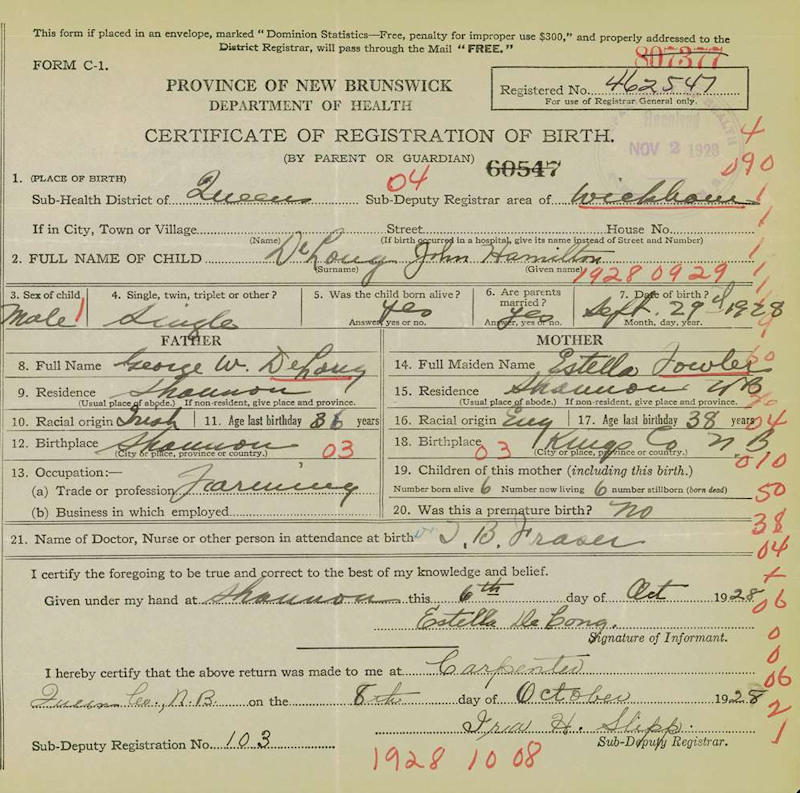 This form if placed in an envelope, marked "Dominion Statistics—Free, penalty for improper use $300," and properly addressed to the
District Registrar, will pass through the Mail "FREE."
807377
FORM C-1.
PROVINCE OF NEW BRUNSWICK
DEPARTMENT OF HEALTH
Registered No. 462547
For use of Registrar General only.
CERTIFICATE OF REGISTRATION OF BIRTH.
NOV 2 1928
4
(BY PARENT OR GUARDIAN) 60547
090
1. (PLACE OF BIRTH)
04
Sub-Health District of Queens Sub-Deputy Registrar area of Wickham
1
If in City, Town or Village Street House No.
1
(Name) (If birth occurred in a hospital, give its name instead of Street and Number)
2. FULL NAME OF CHILD DeLong John Hamilton
1
(Surname) (Given name)
1928 09 29
1
3. Sex of child 4. Single, twin, triplet or other? 5. Was the child born alive? 6. Are parents married? 7. Date of birth?
Male 1 Single yes yes Sept. 29th 1928
Answer yes or no. Answer, yes or no. Month, day, year.
FATHER MOTHER
8. Full Name George W. DeLong 14. Full Maiden Name Estella Fowler
9. Residence Shannon 15. Residence Shannon NB
(Usual place of abode.) If non-resident, give place and province. (Usual place of abode.) If non-resident, give place and province.
10. Racial origin Irish 11. Age last birthday years 16. Racial origin Eng 17. Age last birthday 38 years
04
12. Birthplace Shannon 18. Birthplace Kings Co N.B
(City or place, province or country.) 03 03 (City or place, province or country.)
010
13. Occupation:— 19. Children of this mother (including this birth.)
(a) Trade or profession Farming Number born alive 6 Number now living 6 number stillborn (born dead)
50
(b) Business in which employed 20. Was this a premature birth? No
38
21. Name of Doctor, Nurse or other person in attendance at birth J. B. Fraser
04
I certify the foregoing to be true and correct to the best of my knowledge and belief.
Given under my hand at Shannon this 6th day of Oct 1928
06
Estella DeLong.
Signature of Informant.
0
0
I hereby certify that the above return was made to me at Carpenter
06
Queens Co., N.B. on the 8th day of October 1928
2
Iria H. Slipp.
1
Sub-Deputy Registration No. 103 Sub-Deputy Registrar.
1928 10 08